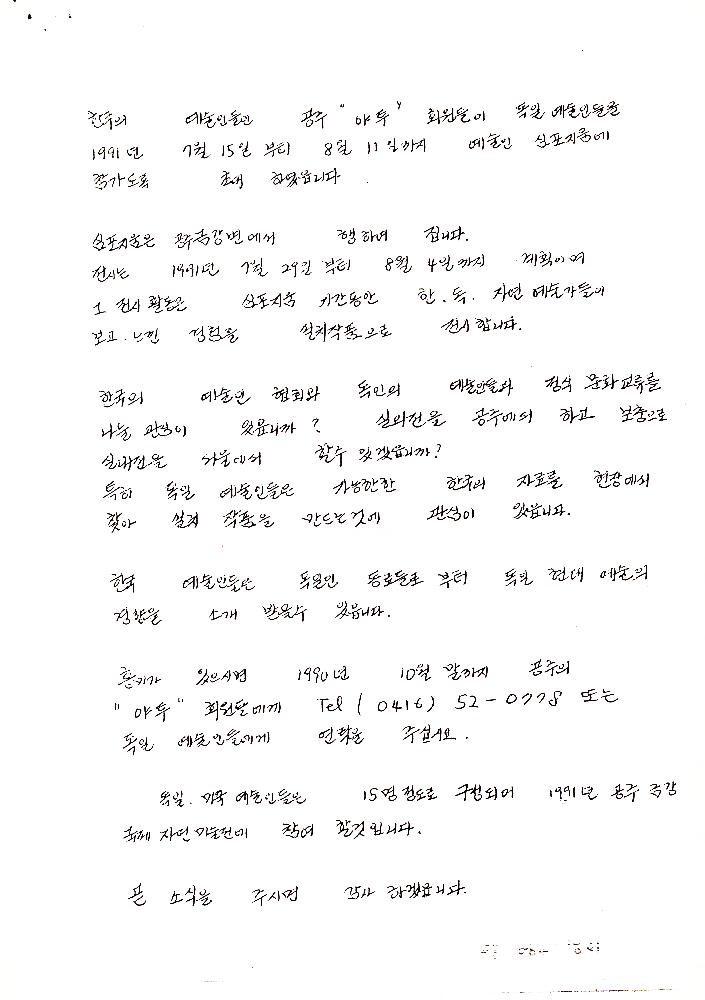 한국의 예술인들인 공주 "야투" 회원들이 독일 예술인들을
1991년 7월 15일 부터 8월 11일까지 예술인 심포지움에
참가도록 초대 하였습니다.
심포지움은 공주금강변에서 행하여 집니다.
전시는 1991년 7월 29일 부터 8월 4일까지 계획이며
그 전시활동은 심포지움 기간동안 한.독. 자연 예술가들이
보고.느낀 경험을 설치작품으로 전시합니다.
한국의 예술인 협회와 독일의 예술인들과 정식 문화교류를
나눌 관심이 있읍니까? 실외전을 공주에서 하고 보충으로
실내전을 서울에서 할수 있겠읍니까?
특히 독일 예술인들은 가능한한 한국의 자료를 현장에서
찾아 설치 작품을 만드는것에 관심이 있읍니다.
한국 예술인들은 독일인 동료들로 부터 독일 현대 예술의
경향을 소개 받을수 있읍니다.
흥미가 있으시면 1990년 10월 말까지 공주의
"야투" 회원들에게 Tel (0416) 52-0778 또는
독일 예술인들에게 연락을 주십시요.
독일. 미국 예술인들은 15명정도로 구성되어 1991년 공주 금강
국제 자연미술전에 참여 할것입니다.
곧 소식을 주시면 감사 하겠읍니다.